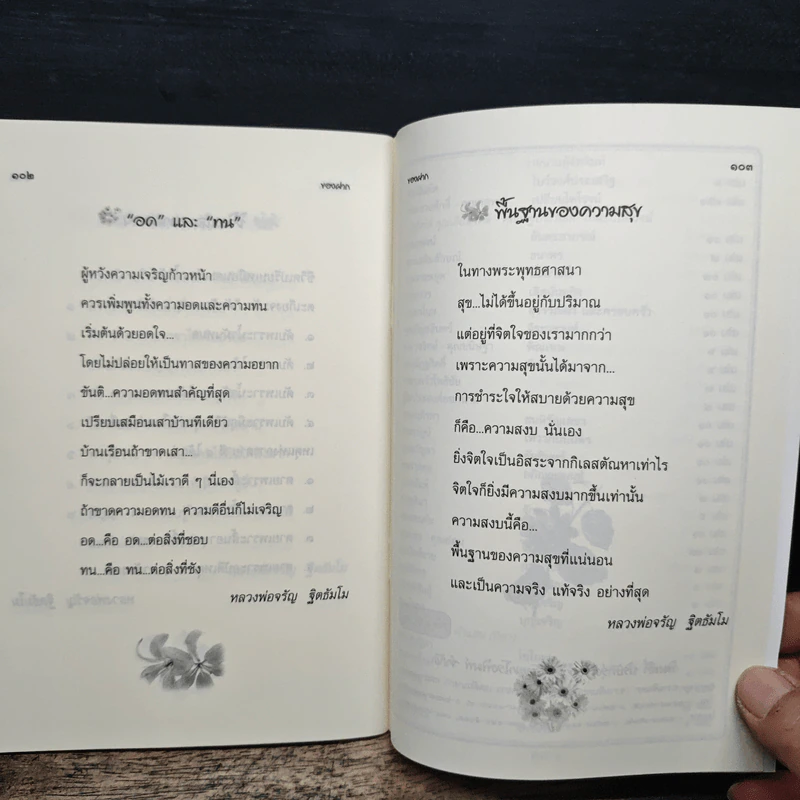 ๑๐๒
ของฝาก
“อด” และ “ทน”
ผู้หวังความเจริญก้าวหน้า
ควรเพิ่มพูนทั้งความอดและความทน
เริ่มต้นด้วยอดใจ...
โดยไม่ปล่อยให้เป็นทาสของความอยาก
ขันติ...ความอดทนสำคัญที่สุด
เปรียบเสมือนเสาบ้านทีเดียว
บ้านเรือนถ้าขาดเสา...
ก็จะกลายเป็นไม้เราดี ๆ นี่เอง
ถ้าขาดความอดทน ความดีอื่นก็ไม่เจริญ
อด...คือ อด...ต่อสิ่งที่ชอบ
ทน...คือ ทน...ต่อสิ่งที่ชัง
หลวงพ่อจรัญ ฐิตธัมโม
ของฝาก
๑๐๓
พื้นฐานของความสุข
ในทางพระพุทธศาสนา
สุข...ไม่ได้ขึ้นอยู่กับปริมาณ
แต่อยู่ที่จิตใจของเรามากกว่า
เพราะความสุขนั้นได้มาจาก...
การชำระใจให้สบายด้วยความสุข
ก็คือ...ความสงบ นั่นเอง
ยิ่งจิตใจเป็นอิสระจากกิเลสตัณหาเท่าไร
จิตใจก็ยิ่งมีความสงบมากขึ้นเท่านั้น
ความสงบนี้คือ...
พื้นฐานของความสุขที่แน่นอน
และเป็นความจริง แท้จริง อย่างที่สุด
หลวงพ่อจรัญ ฐิตธัมโม